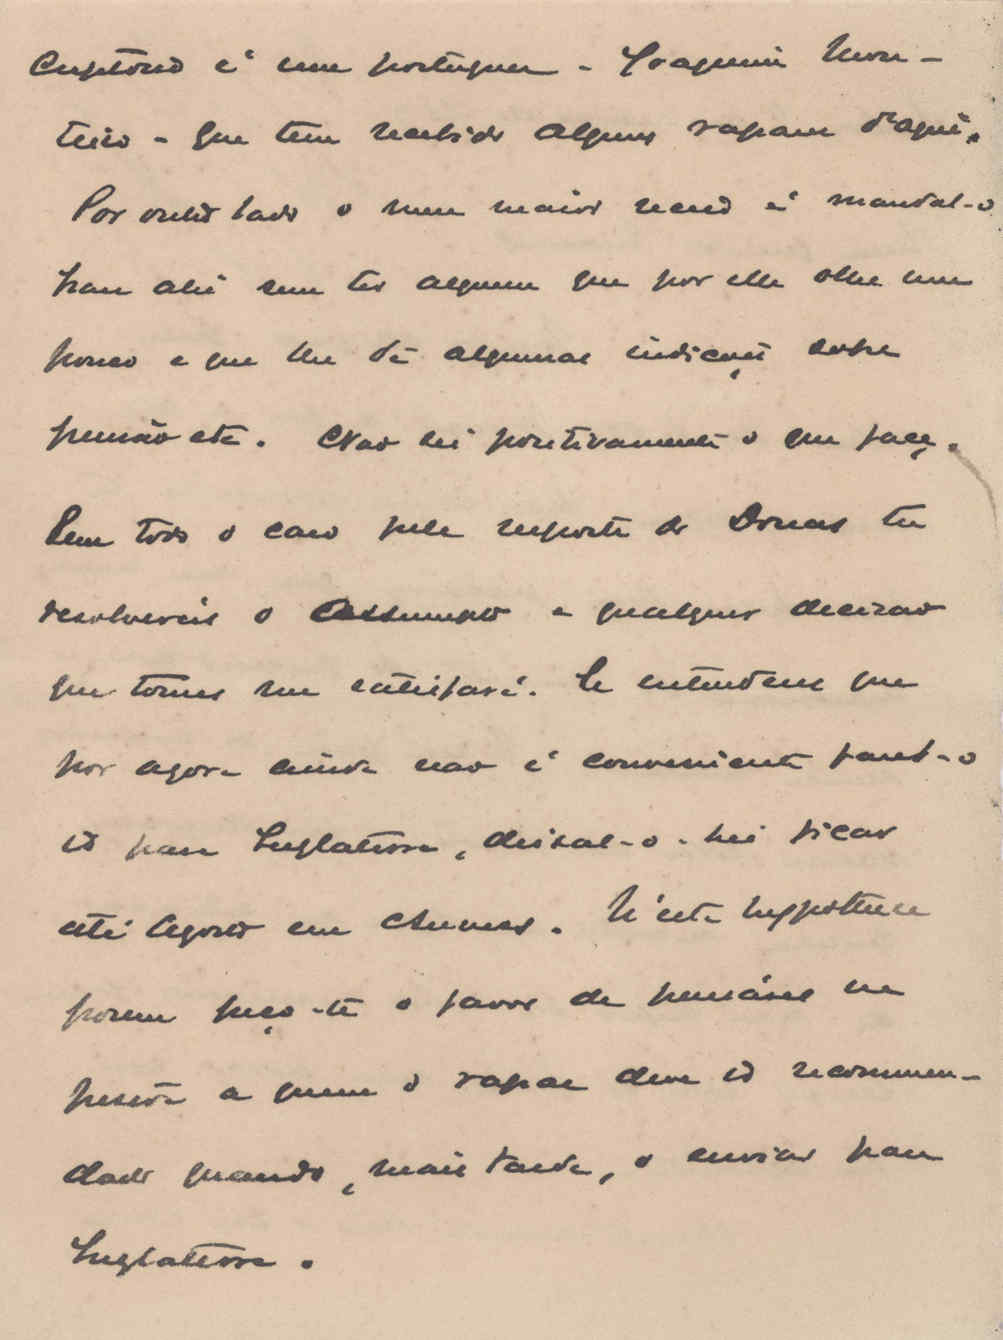 é um portuguez - Joaquim Mon-
teiro - que tem recebido alguns rapazes d'aqui.
Por outro lado o meu maior receio é mandal-o
para ahi sem ter alguem que por elle olhe um
pouco e que lhe dê algumas indicações sobre
pensão etc. Não sei positivamente o que faça.
Em todo o caso pela resposta do Dr. tu
resolverás o assumpto e qualquer decizão
que tomes me satisfará. Se entenderes que
por agora ainda não é conveniente fazel-o
ir para Inglaterra, deixal-o-hei ficar
até Agosto em Chaves. N'esta hyppothese
porem peço-te o favor de pensáres na
pessôa a quem o rapaz deve ir recommen-
dado quando, mais tarde, o enviar para
Inglaterra.